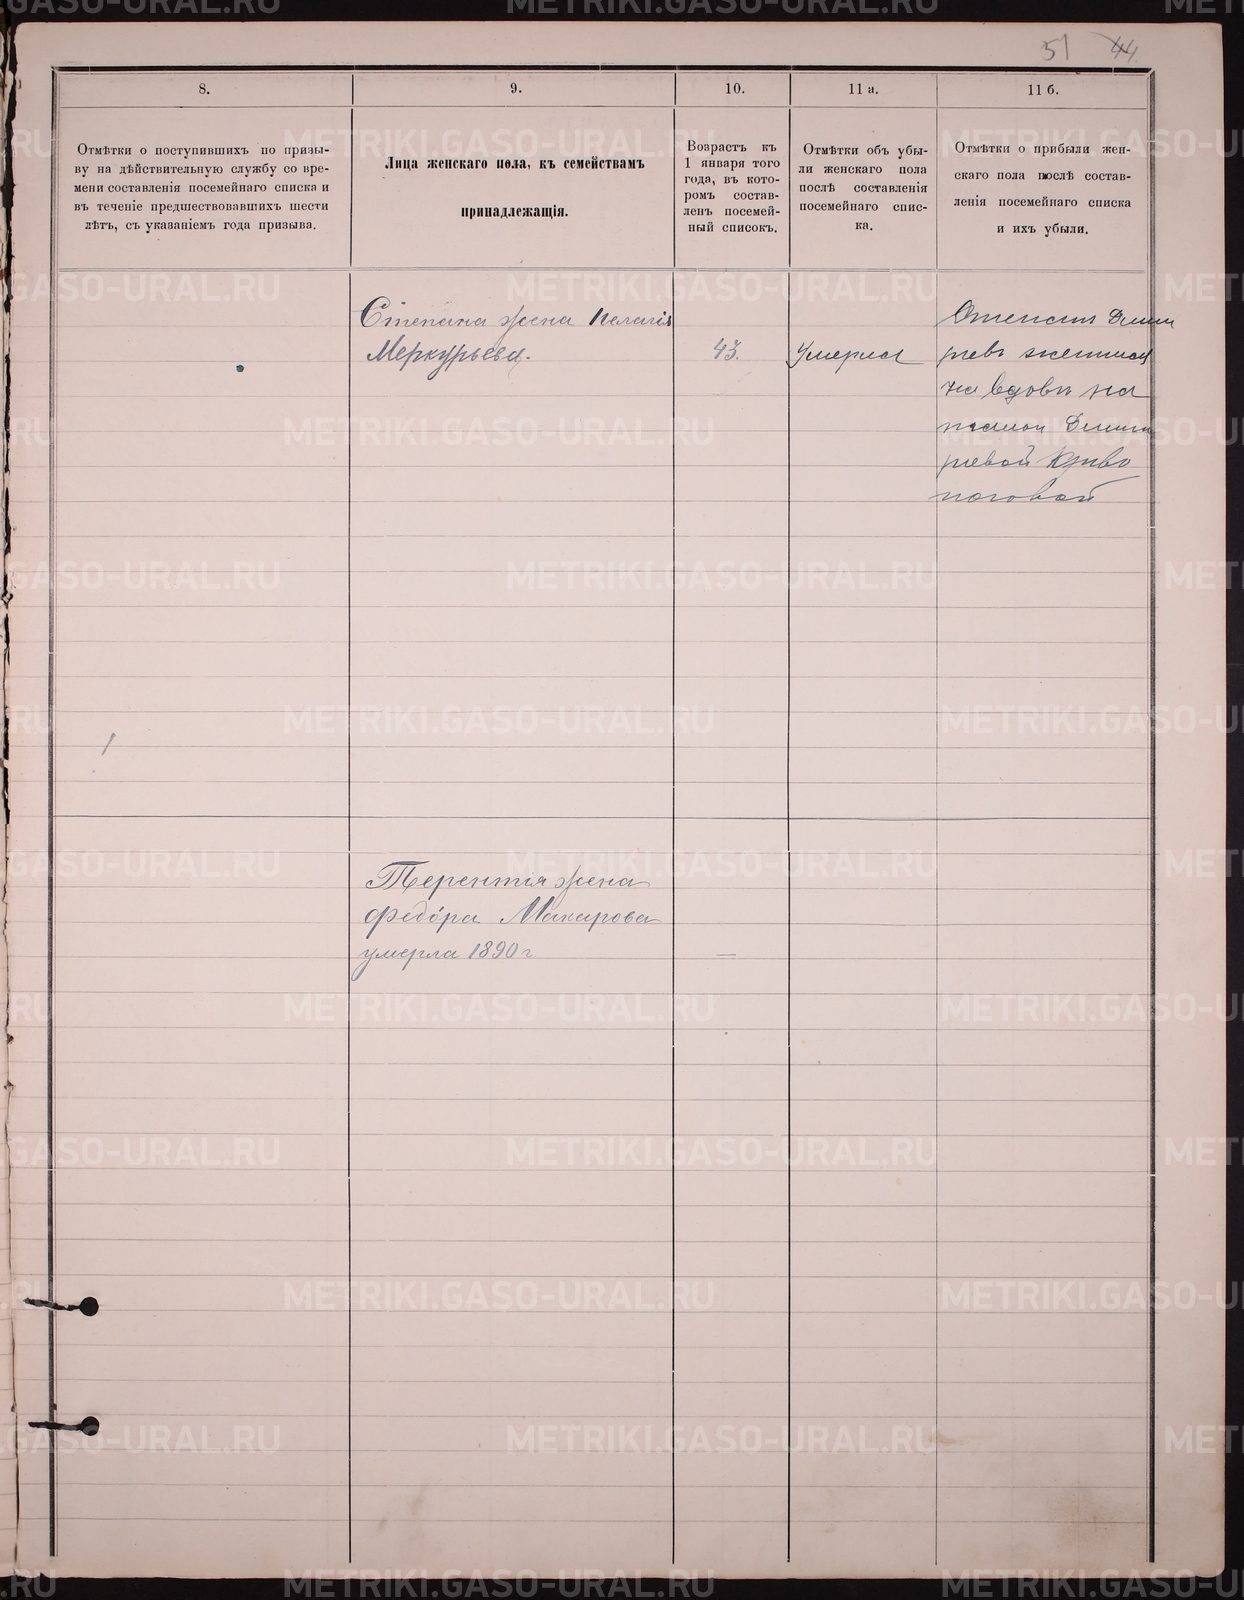 51 44.
8.
9.
10.
11 а.
11 б.
Отмѣтки о поступившихъ по призы-
ву на дѣйствительную службу со вре-
мени составленія посемейнаго списка и
въ теченіе предшествовавшихъ шести
лѣтъ, съ указаніемъ года призыва.
Лица женскаго пола, къ семействамъ
принадлежащія.
Возрастъ къ
1 января того
года, въ кото-
ромъ состав-
ленъ посемей-
ный списокъ.
Отмѣтки объ убы-
ли женскаго пола
послѣ составленія
посемейнаго спис-
ка.
Отмѣтки о прибыли жен-
скаго пола послѣ состав-
ленія посемейнаго списка
и ихъ убыли.
Степана жена Пелагія
Меркурьева.
43.
Умерла
женился
на вдовѣ
Терентія жена
Федора Макарова
умерла 1890 г
METRIKI.GASO-URAL.RU